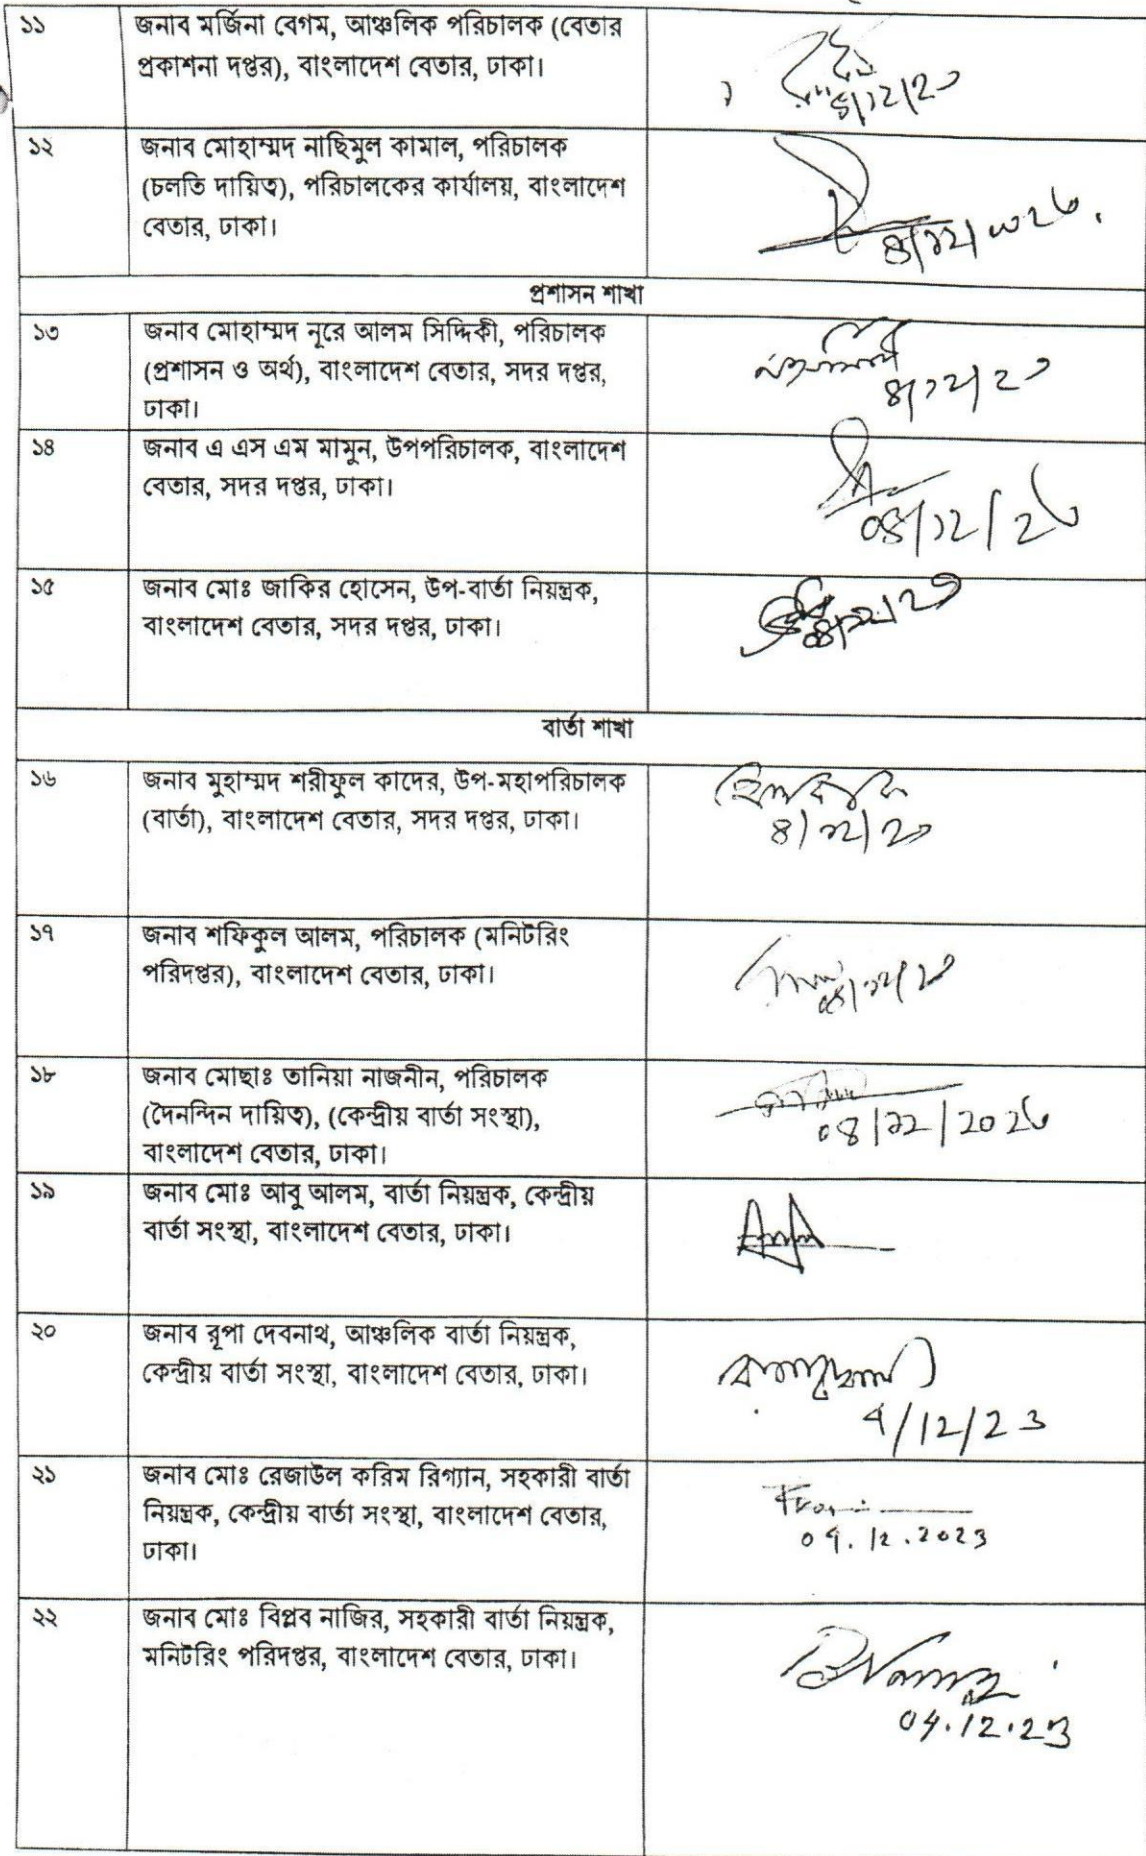 ১১
জনাব মর্জিনা বেগম, আঞ্চলিক পরিচালক (বেতার
প্রকাশনা দপ্তর), বাংলাদেশ বেতার, ঢাকা।
১২
জনাব মোহাম্মদ নাছিমুল কামাল, পরিচালক
(চলতি দায়িত্ব), পরিচালকের কার্যালয়, বাংলাদেশ
বেতার, ঢাকা।
প্রশাসন শাখা
১৩
জনাব মোহাম্মদ নূরে আলম সিদ্দিকী, পরিচালক
(প্রশাসন ও অর্থ), বাংলাদেশ বেতার, সদর দপ্তর,
ঢাকা।
১৪
জনাব এ এস এম মামুন, উপপরিচালক, বাংলাদেশ
বেতার, সদর দপ্তর, ঢাকা।
১৫
জনাব মোঃ জাকির হোসেন, উপ-বার্তা নিয়ন্ত্রক,
বাংলাদেশ বেতার, সদর দপ্তর, ঢাকা।
বার্তা শাখা
১৬
জনাব মুহাম্মদ শরীফুল কাদের, উপ-মহাপরিচালক
(বার্তা), বাংলাদেশ বেতার, সদর দপ্তর, ঢাকা।
১৭
জনাব শফিকুল আলম, পরিচালক (মনিটরিং
পরিদপ্তর), বাংলাদেশ বেতার, ঢাকা।
১৮
জনাব মোছাঃ তানিয়া নাজনীন, পরিচালক
(দৈনন্দিন দায়িত্ব), (কেন্দ্রীয় বার্তা সংস্থা),
বাংলাদেশ বেতার, ঢাকা।
০৪/১২/২০২৩
১৯
জনাব মোঃ আবু আলম, বার্তা নিয়ন্ত্রক, কেন্দ্রীয়
বার্তা সংস্থা, বাংলাদেশ বেতার, ঢাকা।
২০
জনাব রূপা দেবনাথ, আঞ্চলিক বার্তা নিয়ন্ত্রক,
কেন্দ্রীয় বার্তা সংস্থা, বাংলাদেশ বেতার, ঢাকা।
4/12/23
২১
জনাব মোঃ রেজাউল করিম রিগ্যান, সহকারী বার্তা
নিয়ন্ত্রক, কেন্দ্রীয় বার্তা সংস্থা, বাংলাদেশ বেতার,
ঢাকা।
04.12.2023
২২
জনাব মোঃ বিপ্লব নাজির, সহকারী বার্তা নিয়ন্ত্রক,
মনিটরিং পরিদপ্তর, বাংলাদেশ বেতার, ঢাকা।
04.12.23